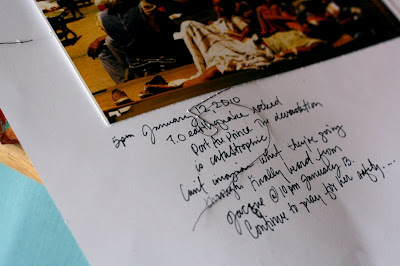 5pm January 12, 2010
7.0 earthquake rocked
Port Au Prince. The devastation
is catastrophic.
Can't imagine what they're going
through. Finally heard from
@ 10pm January 13.
Continue to pray for her safety....